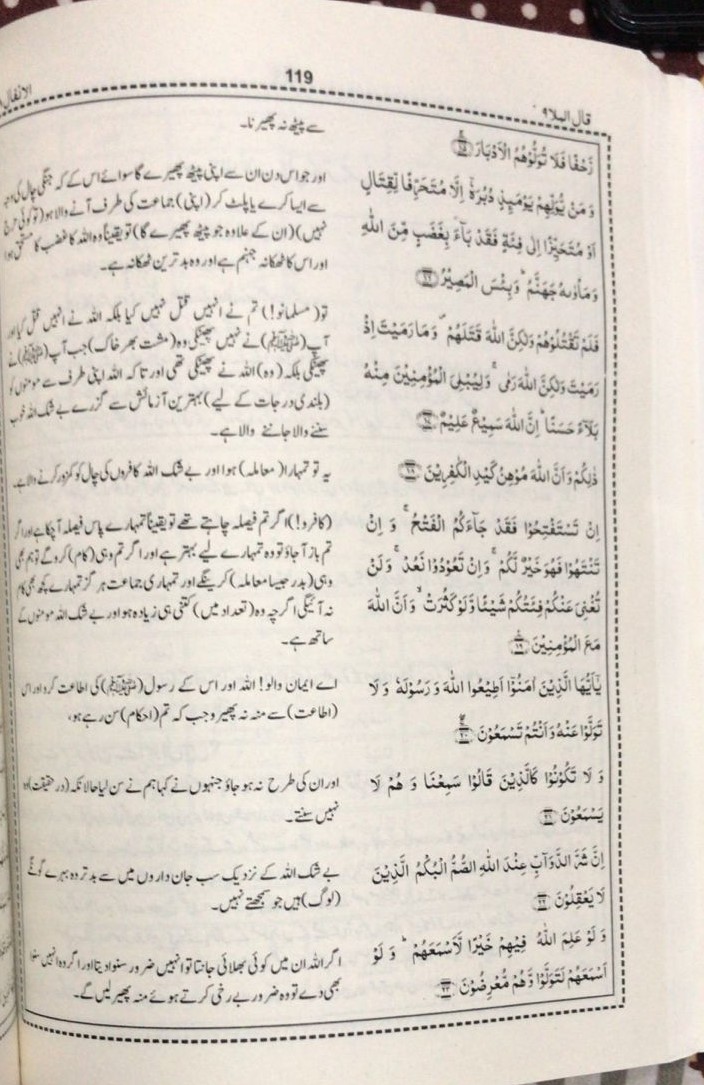 119
قال الملا ۹
الانفال
زَحْفًا فَلَا تُوَلُّوْهُمُ الْاَدْبَارَ ۝۱۵
وَ مَنْ يُّوَلِّهِمْ يَوْمَىِٕذٍ دُبُرَهٗۤ اِلَّا مُتَحَرِّفًا لِّقِتَالٍ
اَوْ مُتَحَيِّزًا اِلٰى فِئَةٍ فَقَدْ بَآءَ بِغَضَبٍ مِّنَ اللّٰهِ
وَ مَاْوٰىهُ جَهَنَّمُ ؕ وَبِئْسَ الْمَصِيْرُ ۝۱۶
فَلَمْ تَقْتُلُوْهُمْ وَلٰكِنَّ اللّٰهَ قَتَلَهُمْ ۪ وَمَا رَمَيْتَ اِذْ
رَمَيْتَ وَلٰكِنَّ اللّٰهَ رَمٰى ۚ وَلِيُبْلِىَ الْمُؤْمِنِيْنَ مِنْهُ
بَلَآءً حَسَنًا ؕ اِنَّ اللّٰهَ سَمِيْعٌ عَلِيْمٌ ۝۱۷
ذٰلِكُمْ وَاَنَّ اللّٰهَ مُوْهِنُ كَيْدِ الْكٰفِرِيْنَ ۝۱۸
اِنْ تَسْتَفْتِحُوْا فَقَدْ جَآءَكُمُ الْفَتْحُ ۚ وَ اِنْ
تَنْتَهُوْا فَهُوَ خَيْرٌ لَّكُمْ ۚ وَاِنْ تَعُوْدُوْا نَعُدْ ۚ وَلَنْ
تُغْنِىَ عَنْكُمْ فِئَتُكُمْ شَيْـًٔا وَّلَوْ كَثُرَتْ ۙ وَاَنَّ اللّٰهَ
مَعَ الْمُؤْمِنِيْنَ ۝۱۹
يٰۤاَيُّهَا الَّذِيْنَ اٰمَنُوْۤا اَطِيْعُوا اللّٰهَ وَ رَسُوْلَهٗ وَ لَا
تَوَلَّوْا عَنْهُ وَ اَنْتُمْ تَسْمَعُوْنَ ۝۲۰
وَ لَا تَكُوْنُوْا كَالَّذِيْنَ قَالُوْا سَمِعْنَا وَ هُمْ لَا
يَسْمَعُوْنَ ۝۲۱
اِنَّ شَرَّ الدَّوَآبِّ عِنْدَ اللّٰهِ الصُّمُّ الْبُكْمُ الَّذِيْنَ
لَا يَعْقِلُوْنَ ۝۲۲
وَ لَوْ عَلِمَ اللّٰهُ فِيْهِمْ خَيْرًا لَّاَسْمَعَهُمْ ؕ وَ لَوْ
اَسْمَعَهُمْ لَتَوَلَّوْا وَّهُمْ مُّعْرِضُوْنَ ۝۲۳
سے پیٹھ نہ پھیرنا۔
اور جو اس دن ان سے اپنی پیٹھ پھیرے گا سوائے اس کے کہ جنگی چال کی وجہ
سے ایسا کرے یا پلٹ کر (اپنی) جماعت کی طرف آنے والا ہو (تو کوئی حرج
نہیں) (ان کے علاوہ جو پیٹھ پھیرے گا) تو یقیناً وہ اللہ کا غضب کا مستحق ہوا
اور اس کا ٹھکانہ جہنم ہے اور وہ بد ترین ٹھکانہ ہے۔
تو (مسلمانو!) تم نے انہیں قتل نہیں کیا بلکہ اللہ نے انہیں قتل کیا اور
آپ (ﷺ) نے نہیں پھینکی وہ (مشت بھر خاک) جب آپ (ﷺ) نے
پھینکی بلکہ (وہ) اللہ نے پھینکی تھی اور تا کہ اللہ اپنی طرف سے مومنوں کو
(بلندی درجات کے لیے) بہترین آزمائش سے گزرے بے شک اللہ خوب
سننے والا جاننے والا ہے۔
یہ تو تمہارا (معاملہ) ہوا اور بے شک اللہ کافروں کی چال کو کمزور کرنے والا ہے۔
(کافرو!) اگر تم فیصلہ چاہتے تھے تو یقیناً تمہارے پاس فیصلہ آ چکا ہے اور اگر
تم باز آ جاؤ تو وہ تمہارے لیے بہتر ہے اور اگر تم وہی (کام) کرو گے تو ہم بھی
وہی (بدر جیسا معاملہ) کرینگے اور تمہاری جماعت ہر گز تمہارے کچھ بھی کام
نہ آئیگی اگرچہ وہ (تعداد میں) کتنی ہی زیادہ ہو اور بے شک اللہ مومنوں کے
ساتھ ہے۔
اے ایمان والو! اللہ اور اس کے رسول (ﷺ) کی اطاعت کرو اور اس
(اطاعت) سے منہ نہ پھیرو جب کہ تم (احکام) سن رہے ہو،
اور ان کی طرح نہ ہو جاؤ جنہوں نے کہا ہم نے سن لیا حالانکہ (در حقیقت) وہ
نہیں سنتے۔
بے شک اللہ کے نزدیک سب جان داروں میں سے بد تر وہ بہرے گونگے
(لوگ) ہیں جو سمجھتے نہیں۔
اگر اللہ ان میں کوئی بھلائی جانتا تو انہیں ضرور سنوا دیتا اور اگر وہ انہیں سنوا
بھی دے تو وہ ضرور بے رخی کرتے ہوئے منہ پھیر لیں گے۔